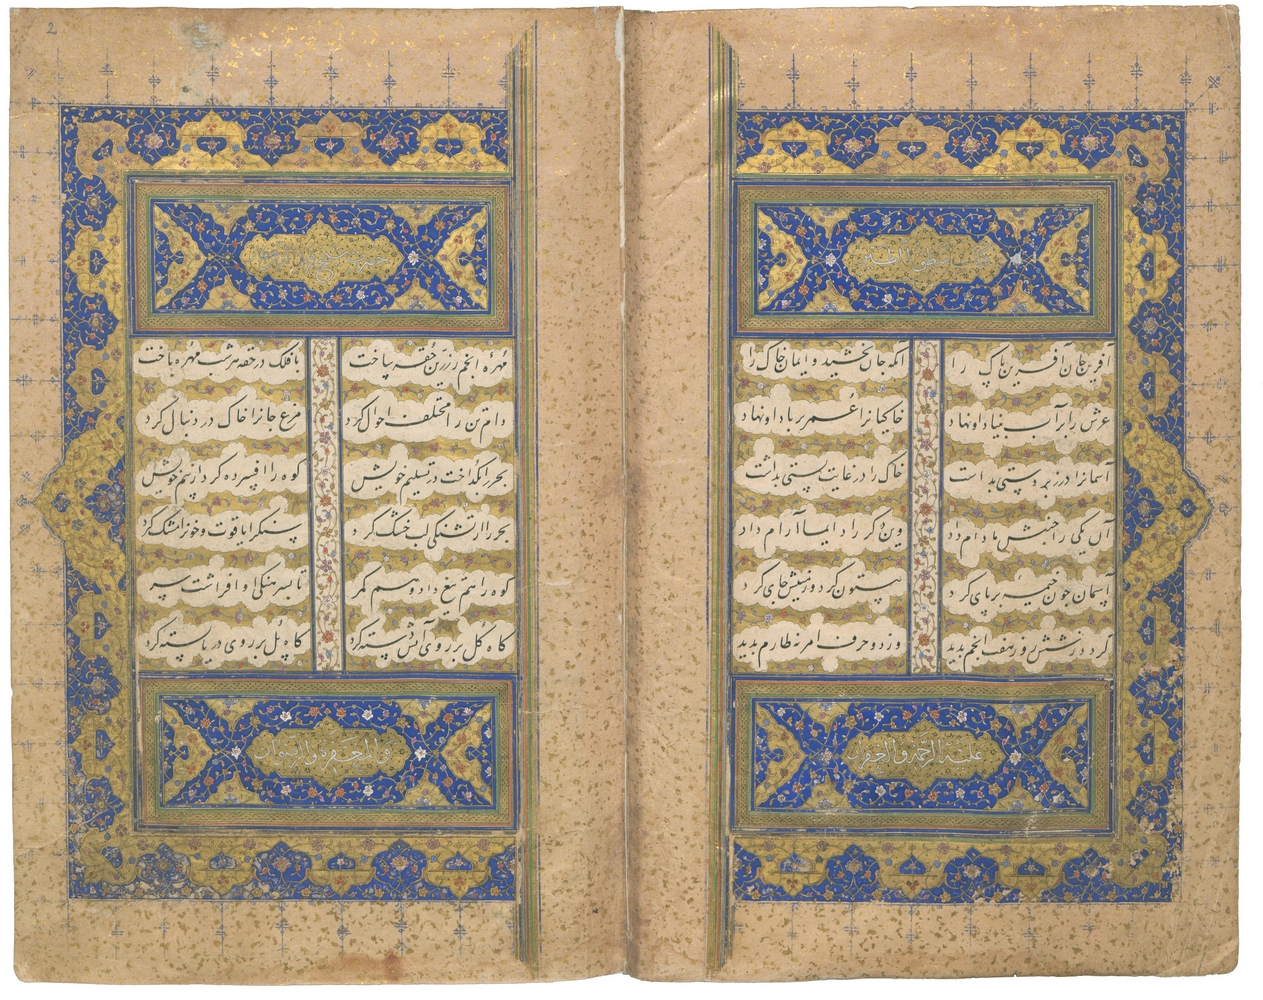 کتاب منطق الطیر
آفرین جان آفرین پاک را انکه جان بخشید و ایمان خاک را
عرش را بر آب بنیاد او نهاد خاکیانرا عمر بر باد او نهاد
آسمانرا در زبردستی بداشت خاک را در غایت پستی بداشت
آن یکی را جنبش مادام داد وین دکر را دایما آرام داد
آسمان چون خیمه بر پای کرد بیستون کرد و زمینش جای کرد
کرد در شش روز هفت انجم پدید وز دو حرف امر نه طارم پدید
علیه الرحمة والغفران
2
مهره انجم ز زرین حقه ساخت با فلک در حقه هر شب مهره باخت
دام تن را مختلف احوال کرد مرغ جانرا خاک در دنبال کرد
بحر را بکداخت در تسلیم خویش کوه را افسرده کرد از بیم خویش
بحر را از تشنکی لب خشک کرد سنک را یاقوت و خونرا مشک کرد
کوه را هم تیغ داد و هم کمر تا بسرهنکی او افراشت سر
کاه کل بر روی آتش دسته کرد کاه پل بر روی دریا بسته کرد
والمغفرة والرضوان